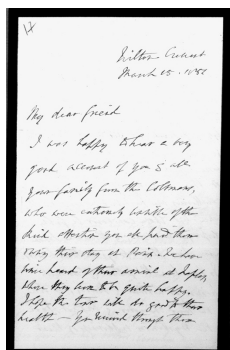 Wilton Crescent
March 15. 188
My dear friend
I was happy to hear a very
good account of you & all
your family from the
who were extremely sensible of the
kind attention you all paid them
during their stay at
heard of their arrival at Naples,
where they to be quite happy.
I hope the tour will do good to their
health — You received through them